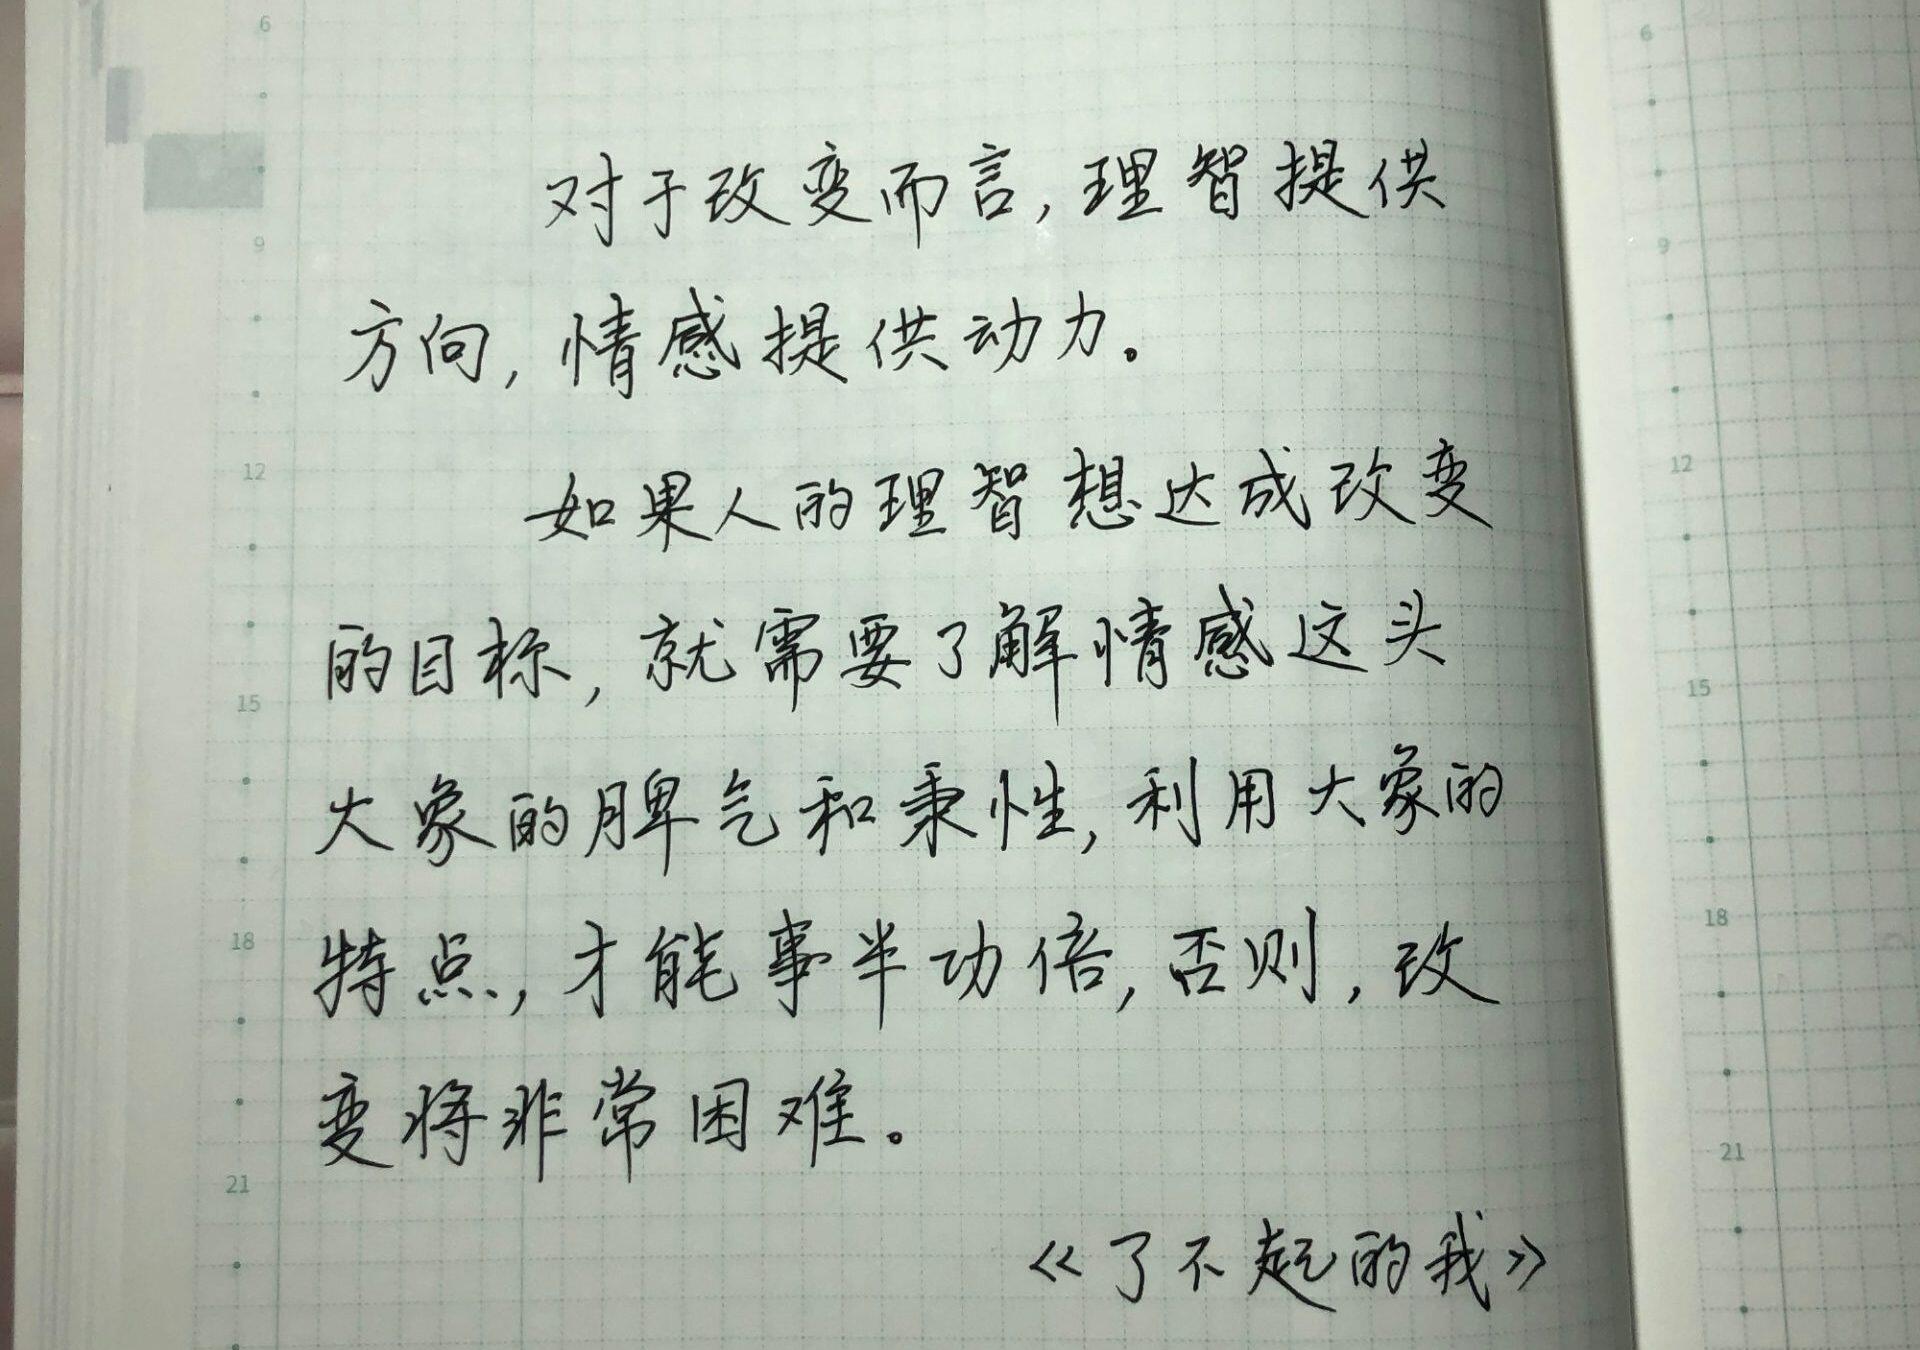 对于改变而言,理智提供
方向,情感提供动力。
如果人的理智想达成改变
的目标,就需要了解情感这头
大象的脾气和秉性,利用大象的
特点,才能事半功倍,否则,改
变将非常困难。
《了不起的我》
6
9
12
15
18
21
6
9
12
15
18
21